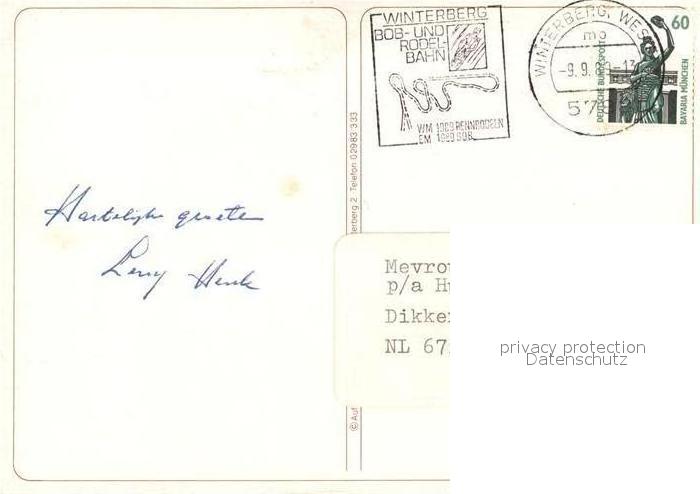 Hartelijke groeten
Leny Henk
WINTERBERG
BOB- UND
RODEL-
BAHN
WM 1989 RENNRODELN
EM 1989 BOB
WINTERBERG, WEST
mb
-9.9.
60
DEUTSCHE BUNDESPOST
BAVARIA MÜNCHEN
erberg 2 · Telefon 02983 333
Mevrou
p/a H
Dikke
NL 67
privacy protection
Datenschutz
© Auf